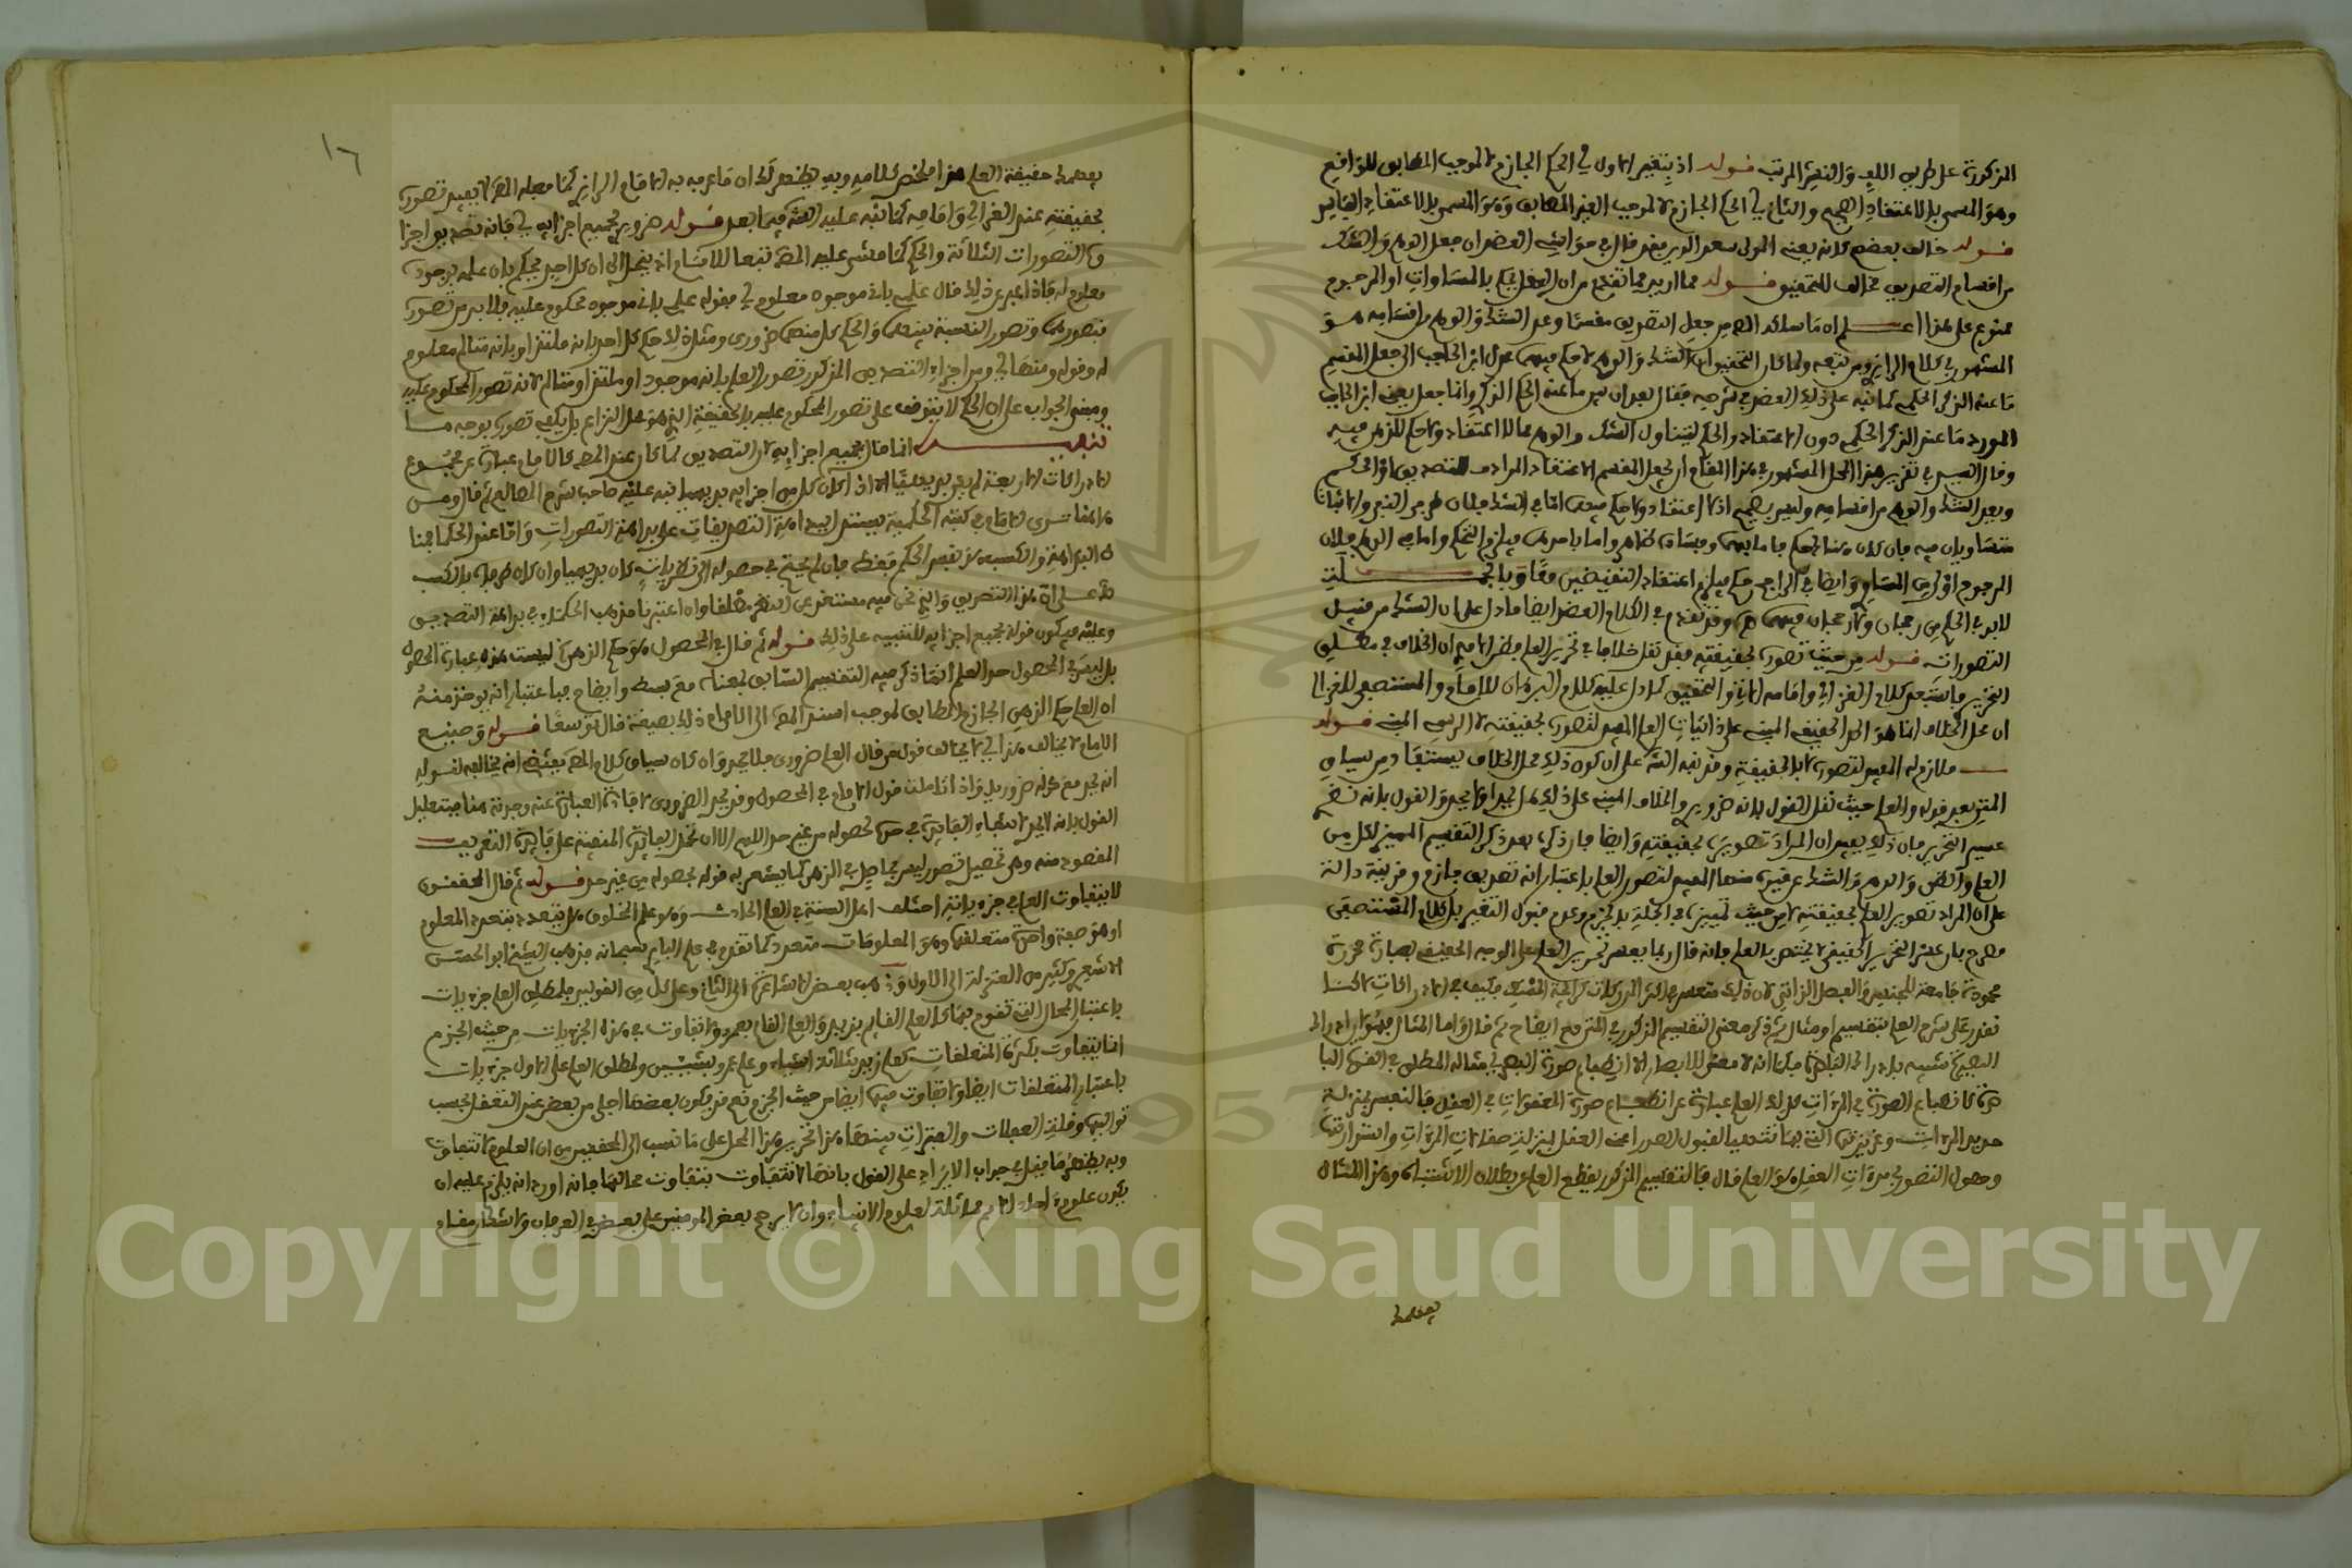 المذكورة على طريق اللف والنشر المرتب قوله اذ يتغير الاول في الحكم الجازم لا لموجب المطابق للواقع
وهو المسمى بالاعتقاد الصحيح والثاني الحكم الجازم لا لموجب الغير المطابق وهو المسمى بالاعتقاد الفاسد
قوله خالف بعضهم لانه يعني المولى سعد الدين فقد قال في حواشي العضد ان جعل الوهم والشك
من اقسام التصديق مخالف للتحقيق قوله مما اريد مما تقدم من ان العقل يحكم بالمساوات او المرجوح
ممنوع على هذا اعلم ان ما سلكه المص من جعل التصديق مقسما وعد الشك والوهم من اقسامه هو
المشهور في كلام الرازي ومن تبعه ولما كان التحقيق ان الشك والوهم لا حكم فيهما عدل ابن الحاجب الى جعل المقسم
ما عنه الذكر الحكمي كما نبه على ذلك العضد في شرحه فقال بعد ان بين ما عنه الحكم الذكري وانما جعل يعني ابن الحاجب
المورد ما عنه الذكر الحكمي دون الاعتقاد والحكم ليتناول الشك والوهم مما لا اعتقاد ولا حكم للذهن فيه
وقال السيد في تقرير هذا المحل المشهور في هذا المقام ان يجعل المقسم الاعتقاد المرادف للتصديق او الحكم
ويعد الشك والوهم من اقسامه وليس بصحيح اذ لا اعتقاد ولا حكم فيهما اما في الشك فلان طرفي النفي والاثبات
متساويان فيه فان كان هنا حكم فاما بهما وفساده ظاهر واما باحدهما فيلزم التحكم واما في الوهم فلان
المرجوح اولى من المساوي وايضا في الراجح حكم فيلزم اعتقاد النقيضين معا وبالجملة
لابد في الحكم من رجحان ولا رجحان فيهما وقد تقدم في الكلام العضد ايضا ما دل على ان الشك من قبيل
التصورات قوله من حيث تصوره بحقيقته فقد نقل خلافا في تحرير العلم فظهر الامر ان الخلاف في مطلق
ان محل الخلاف انما هو الحد الحقيقي المبني على ذاتيات العلم المفيد لتصوره بحقيقته لا الرسمي المبني قوله
ملازم له المفيد لتصوره لا بالحقيقة وقرينة الشه على ان كون ذلك محل الخلاف يستفاد من سياق
المتن بعد قوله والعلم حيث نقل القول بانه ضروري والخلاف المبني على ذلك هل يحد او لا يحد والقول بانه نظري
عسير التحرير فان ذلك يفيد ان المراد تصويره بحقيقته وايضا فان ذكره بعد ذكر التقسيم المميز لكل من
العلم والظن والوهم والشك عن غيره منها المفيد لتصور العلم باعتبار انه تصديق جازم قرينة دالة
على ان المراد تصوير العلم بحقيقته لا من حيث تمييزه في الجملة بالجزم وعدم قبول التغير بل كلام المستصفى
مصرح بان عسر التحرير الحقيقي لا يختص بالعلم فانه قال ربما يعسر تحرير العلم على الوجه الحقيقي بعبارة محررة
جامعة للجنس والفصل الذاتي لان ذلك متعسر في اكثر المدركات كرائحة المسك فكيف في الادراكات لكنا
نقدر على شرح العلم بتقسيم او مثال ثم ذكر معنى التقسيم المذكور في المتن مع ايضاح ثم قال واما المثال فهو ان ادراك
البصيرة شبيه بادراك الباصرة فكما انه لا معنى للابصار الا انطباع صورة المبصر اي مثاله المطابق في القوة البا
صرة كانطباع الصورة في المرءات كذلك العلم عبارة عن انطباع صورة المعقولات في العقل فالنفس بمنزلة
حديد المرءات وغريزتها التي بها تتهيأ لقبول الصور اعني العقل بمنزلة صقالة المرءات واستدارتها
وحصول التصور في مرءات العقل هو العلم قال فالتقسيم المذكور يقطع العلم عن مظان الاشتباه وهذا المثال
يفهمك
١٦
يفهمك حقيقة العلم هذا ملخص كلامه وبه يظهر لك ان ما عرفه به الامام الرازي كما فعله المص لا يفيد تصوره
بحقيقته عند الغزالي وامامه كما نبه عليه الشه فيما بعد قوله ضروري بجميع اجزايه اي فانه تصديق واجزا
وه التصورات الثلاثة والحكم كما مشى عليه المص تبعا للامام اذ ينحل الى ان كل احد يحكم بان علمه بوجوده
معلوم له فاذا عبر عن ذلك قال علمي باني موجود معلوم لي فقوله علمي باني موجود محكوم عليه فلابد من تصوره
فتصورهما وتصور النسبة بينهما والحكم كل منهما ضروري ومثله لا حكم كل احد بانه ملتذ او بانه متالم معلوم
له وقوله ومنها اي ومن اجزاء التصديق المذكور تصور العلم بانه موجود او ملتذ او متالم لانه تصور المحكوم عليه
ومبنى الجواب على ان الحكم لا يتوقف على تصور المحكوم عليه بالحقيقة الذي هو محل النزاع بل يكفي تصوره بوجه ما
تنبيه انما قال بجميع اجزايه لان التصديق لما كان عند المص كالامام عبارة عن مجموع
الادراكات الاربعة لم يكن بديهيا الا اذا كان كل من اجزايه بديهيا نبه عليه صاحب شرح المطالع ثم قال ومن
هاهنا ترى الامام في كتبه الحكمية يستدل ببداهة التصديقات على بداهة التصورات واما عند الحكما فمنا
ط البداهة والكسب هو نفس الحكم فقط فان لم يحتج في حصوله الى نظر كان بديهيا وان كان طرفاه بالكسب
وعليه فيكون قوله بجميع اجزايه للتنبيه على ذلك قوله ثم قال في المحصول هو حكم الذهن اي ليست هذه عبارة المحصول
بل ليس في المحصول حد العلم انما ذكر فيه التقسيم السابق بمعناه مع بسط وايضاح فباعتبار انه يوخذ منه
ان العلم حكم الذهن الجازم المطابق لموجب اسند المص الى الامام ذلك بصيغة قال توسعا قوله وصنيع
الامام لا يخالف هذا اي لا يخالف قوله من قال العلم ضروري فلا يحد وان كان سياق كلام المص يقتضي انه يخالفه لقوله
انه يحد مع كونه ضروريا واذا تاملت قول الامام في المحصول وقد يحد الضروري لافادة العبارة عنه وجدته مناسبا لتعليل
القول بانه لا يحد لانتفاء الفائدة في حده لحصوله من غير حد اللهم الا ان تحمل الفائدة المنفية على فائدة التعريف
المقصود منه وهو تحصيل تصور ليس بحاصل في الذهن كما يشعر به قوله بحصوله من غير حد قوله ثم قال المحققون
لا يتفاوت العلم في جزءياته اختلف اهل السنة في العلم الحادث وهو علم المخلوق هل يتعدد بتعدد المعلوم
او هو صفة واحدة متعلقها وهو المعلومات متعدد كما تقدم في علم الباري سبحانه فذهب الشيخ ابو الحسن
الاشعري وكثير من المعتزلة الى الاول وذهب بعض الاشاعرة الى الثاني وعلى كل من القولين فلمطلق العلم جزءيات
باعتبار المحال التي تقوم بها كالعلم القايم بزيد والعلم القايم بعمرو ولا تفاوت في هذه الجزءيات من حيث الجزم
انما يتفاوت بكثرة المتعلقات كعلم زيد بثلاثة اشياء وعلم عمرو بشيئين ولمطلق العلم على الاول جزءيات
باعتبار المتعلقات ايضا ولا تفاوت فيها ايضا من حيث الجزم نعم قد يكون بعضها اجلى من بعض عند العقل بحسب
تواليها وقلة الغفلات والفترات بينها هذا تحرير هذا المحل على ما نسب الى المحققين من ان العلوم لا تتفاوت
وبه يظهر ما قيل في جواب الايراد على القول بانها لا تتفاوت بتفاوت محالها فانه اورد انه يلزم عليه ان
يكون علوم احاد الامم مماثلة لعلوم الانبياء وان لا يرجح بعض المومنين على بعض في العرفان ولا شك ان مقام
Copyright © King Saud University
1957